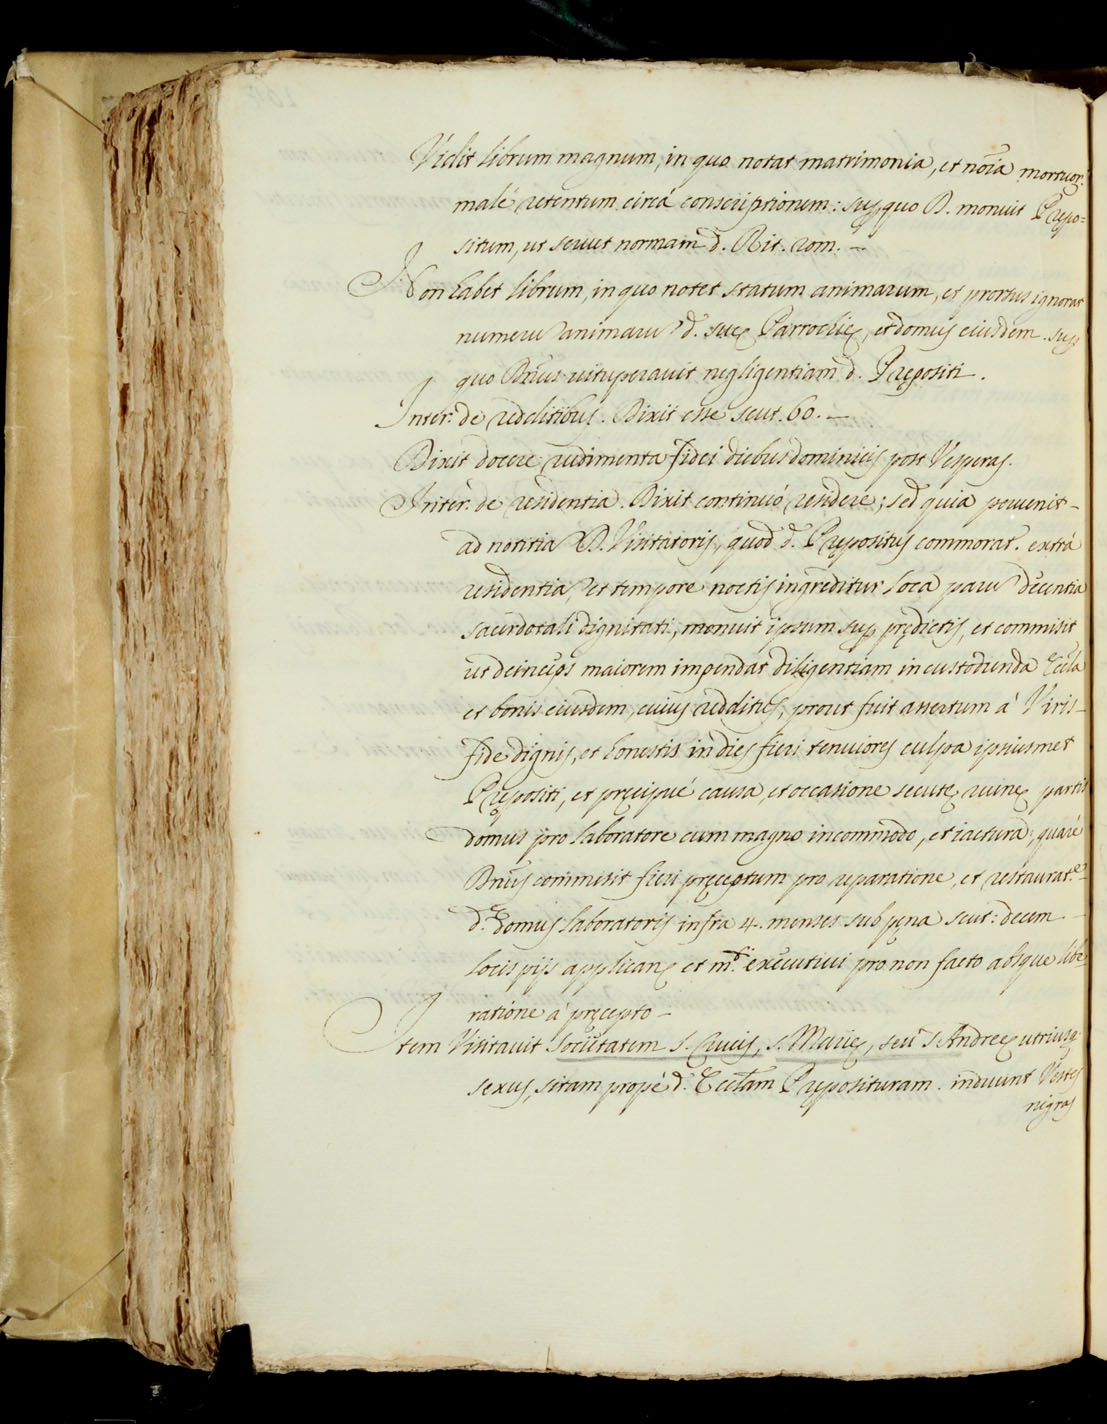 Vidit librum magnum, in quo notat matrimonia, et nõia mortuor:
malé retentum circá conscriptionem: sup quo D. monuit Prepo=
situm, ut servet normam d. Rit. rom. —
Non habet librum, in quo notet statum animarum, et prorsus ignorat
numerũ animarũ d. suę Parrochię, et domus eiusdem. sup
quo Dñus vituperavit negligentiam d. Prępositi.
Inter: de redditibus. Dixit esse scut. 60. —
Dixit docere rudimenta fidei diebus dominicis post Vesperas.
Inter: de residentia. Dixit continuó residere; sed quia pervenit
ad notitiã D. Visitatoris, quod d. Prępositus commorat. extrá
residentiã, et tempore noctis ingreditur loca parũ decentia
sacerdotali dignitati, monuit ipsum sup prędictis, et commisit
ut deinceps maiorem impendat diligentiam in custodienda Eccľa
et bonis eiusdem, cuius redditus, prout fuit assertum á Viris
fide dignis, et honestis in dies fieri tenuiores culpa ipsiusmet
Prępositi, et pręcipué causa, et occasione secutę ruinę partis
domus pro laboratore cum magno incommodo, et iactura, quaré
Dñus commisit fieri pręceptum pro reparatione, et restaurat.e
d. Domus laboratoris infra 4. menses sub pęna scut: decem
locis pijs applicanę et m.ti executivi pro non facto absque libe=
ratione á pręcepto —
Item Visitavit Societatem S. Crucis, S. Marię, seu S. Andreę utriusq.
sexus, sitam propé d. Eccľam Pręposituram. induunt Vestes
nigras